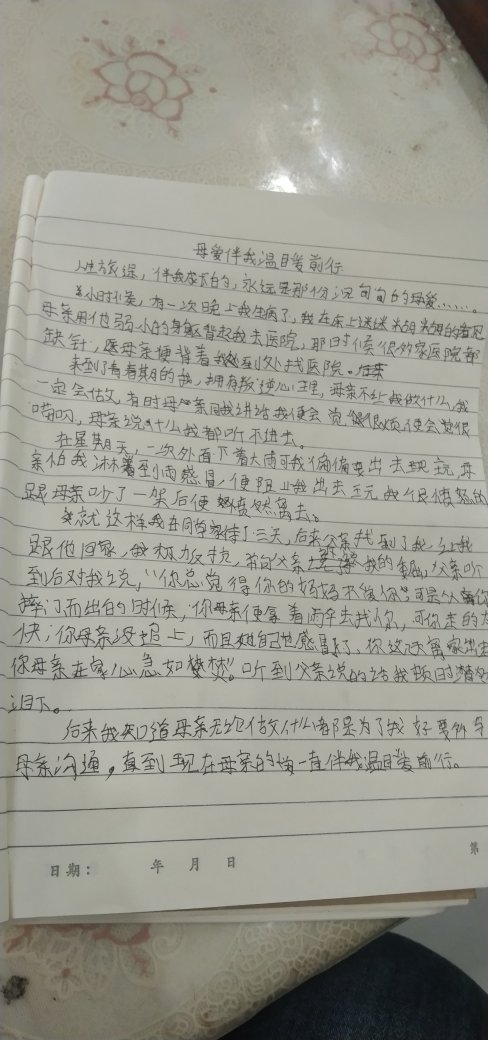 母爱伴我温暖前行
人生旅程，伴我成长的，永远是那份沉甸甸的母爱……。
小时候，有一次晚上我生病了，我在床上迷迷糊糊的看见
母亲用他弱小的身躯背起我去医院，那时候很多家医院都
缺针，母亲便背着我到处找医院。后来
来到了青春期的我，拥有叛逆心理，母亲不让我做什么我
一定会做，有时母亲同我讲话我便会觉得很烦，便会觉很
唠叨，母亲说什么我都听不进去。
在星期天，一次外面下着大雨可我偏偏要出去玩，母
亲怕我淋着雨感冒，便阻止我出去玩，我很愤怒的
跟母亲吵了一架后便愤然离去。
就这样我在同学家待了三天，后来父亲找到了我，让我
跟他回家，我极力反抗，向父亲我的，父亲听
到后对我说，“你总觉得你的妈妈不像你可是从你
摔门而出的时候，你母亲便拿着雨伞去找你，可你走的太
快；你母亲没追上，而且自己也感冒了，你这次离家出走
你母亲在家心急如焚”。听到父亲说的话我顿时潸然
泪下。
后来我知道母亲无论做什么都是为了我好要多与
母亲沟通，直到现在母亲的爱一直伴我温暖前行。
日期： 年 月 日
第